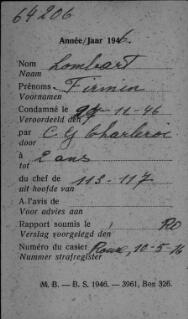 64206
Année/Jaar 1946.
Nom Lombart
Naam
Prénoms Firmin
Voornamen
Condamné le 27-11-46
Veroordeeld den
par CG Charleroi
door
à 2 ans
tot
du chef de 113-117
uit hoofde van
A l'avis de
Voor advies aan
Rapport soumis le RO
Verslag voorgelegd den
Numéro du casier Roux, 10-5-16
Nummer strafregister
M. B. — B. S. 1946. — 3961, Bon 326.